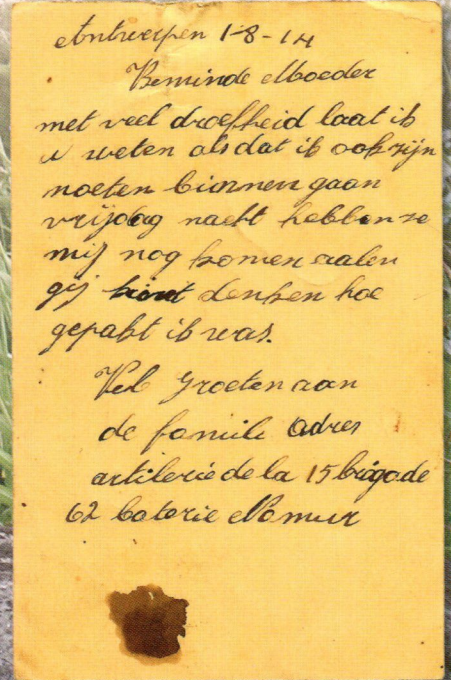 Antwerpen 1-8-14
Beminde Moeder
met veel droefheid laat ik
u weten als dat ik ook zijn
moeten binnen gaan
vrijdag nacht hebben ze
mij nog komen aalen
gij kunt denken hoe
gepakt ik was.
Vel Groeten aan
de famili Adres
artilerie de la 15 brigade
62 baterie Namur